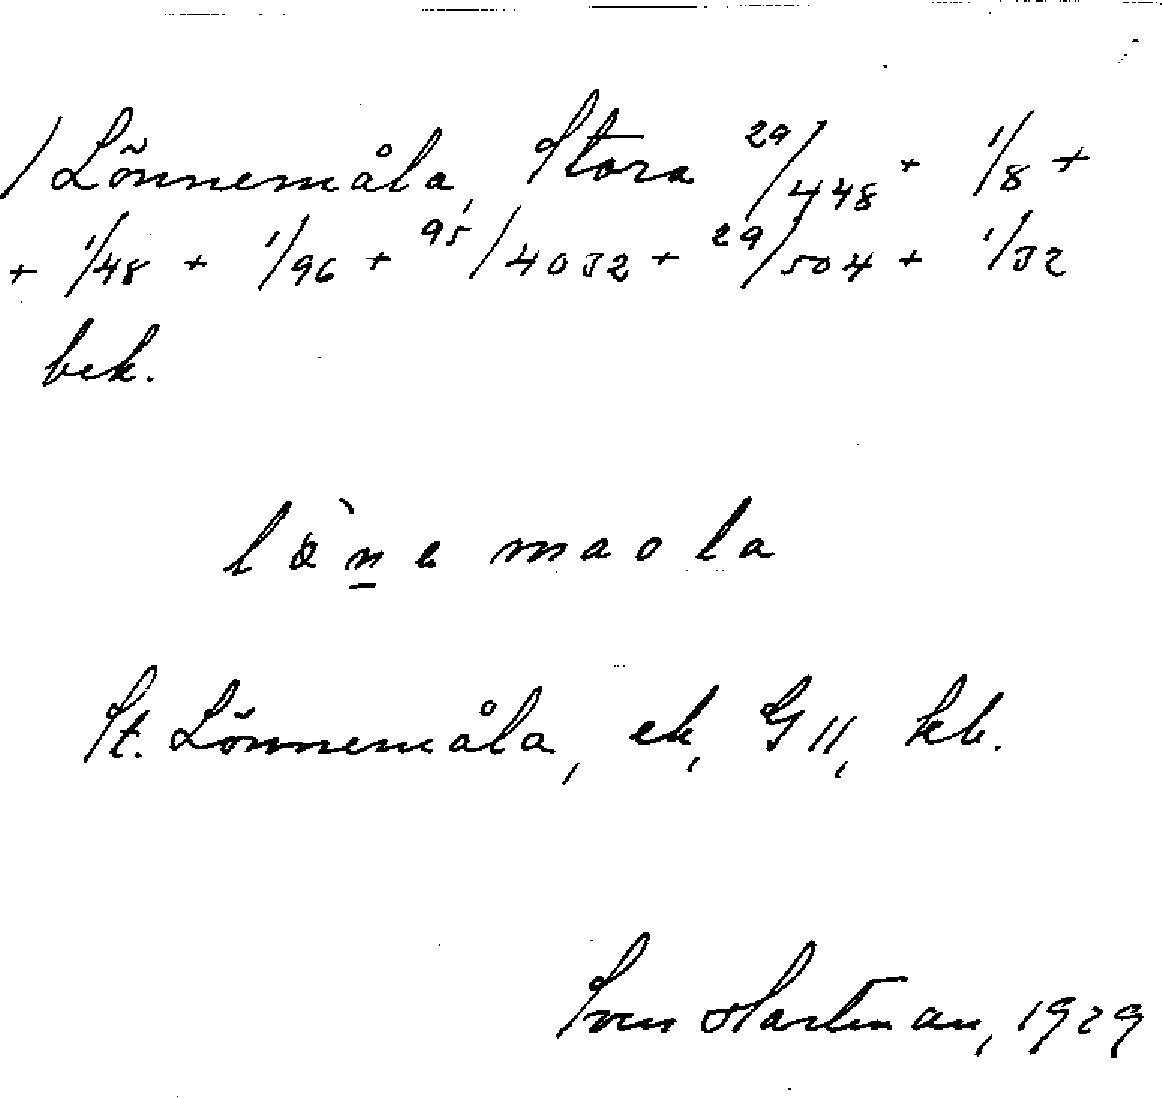 / Lönnemåla, Stora 29/448 + 1/8 +
+ 1/48 + 1/96 + 95/4032 + 29/504 + 1/32
bek.
lø̀n̲e maola
St. Lönnemåla, ek, G 11, kb.
Sven Hartman, 1929